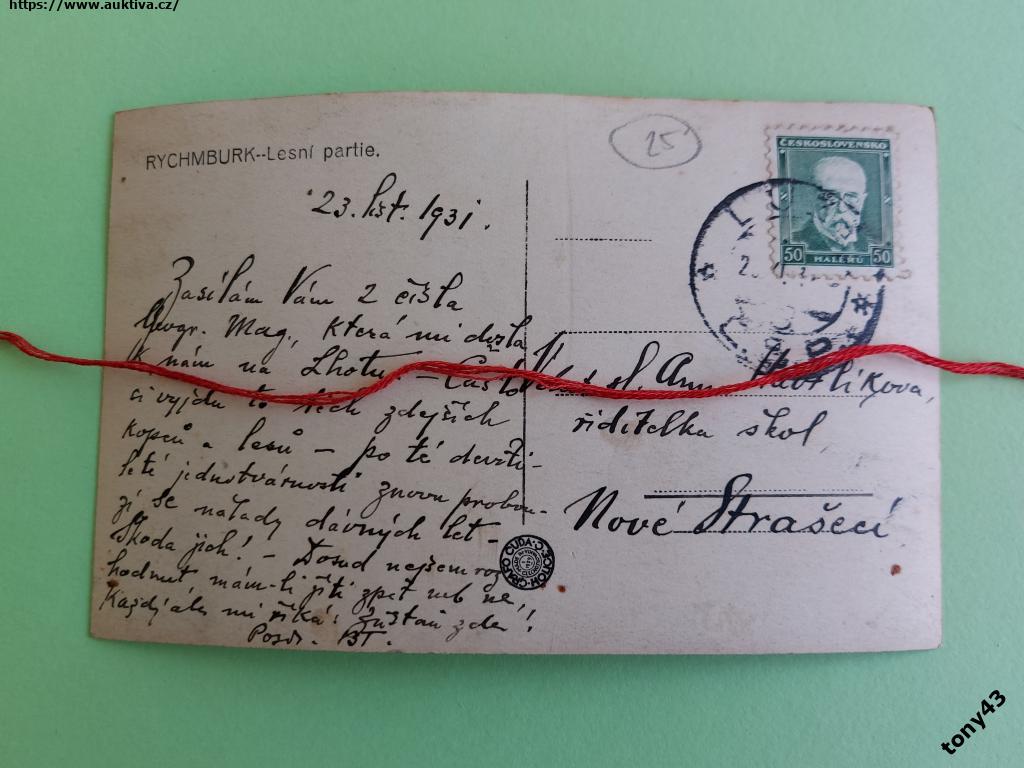 https://www.auktiva.cz/
RYCHMBURK--Lesní partie.
25
ČESKOSLOVENSKO
50 HALÉŘŮ 50
23. list. 1931.
Zasílám Vám 2 čísla
Geogr. Mag., která mi došla
k nám na Lhotu. - Často
si vyjdu to těch zdejších
kopců a lesů - po té
leté jednotvárnosti znovu probou-
zí se nálady dávných let -
Škoda jich! - Dosud nejsem roz
hodnut mám-li jíti zpět neb ne,
Každý mi říká: zůstaň zde!
Pozdr. BT.
sl.
ředitelka škol
Nové Strašecí
GRAFO ČUDA HOLICE
tony43